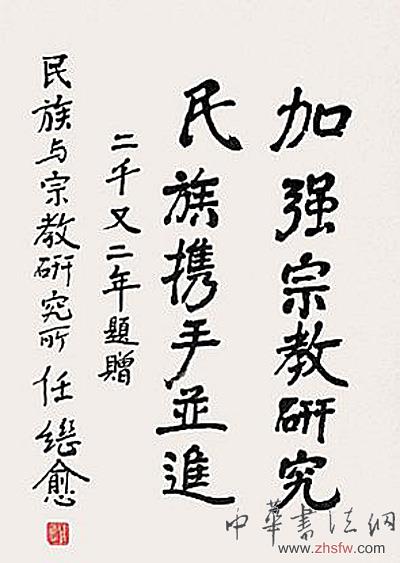 加强宗教研究
民族携手並進
二千又二年題贈
民族与宗教研究所 任继愈
中華書法網
www.zhsfw.com